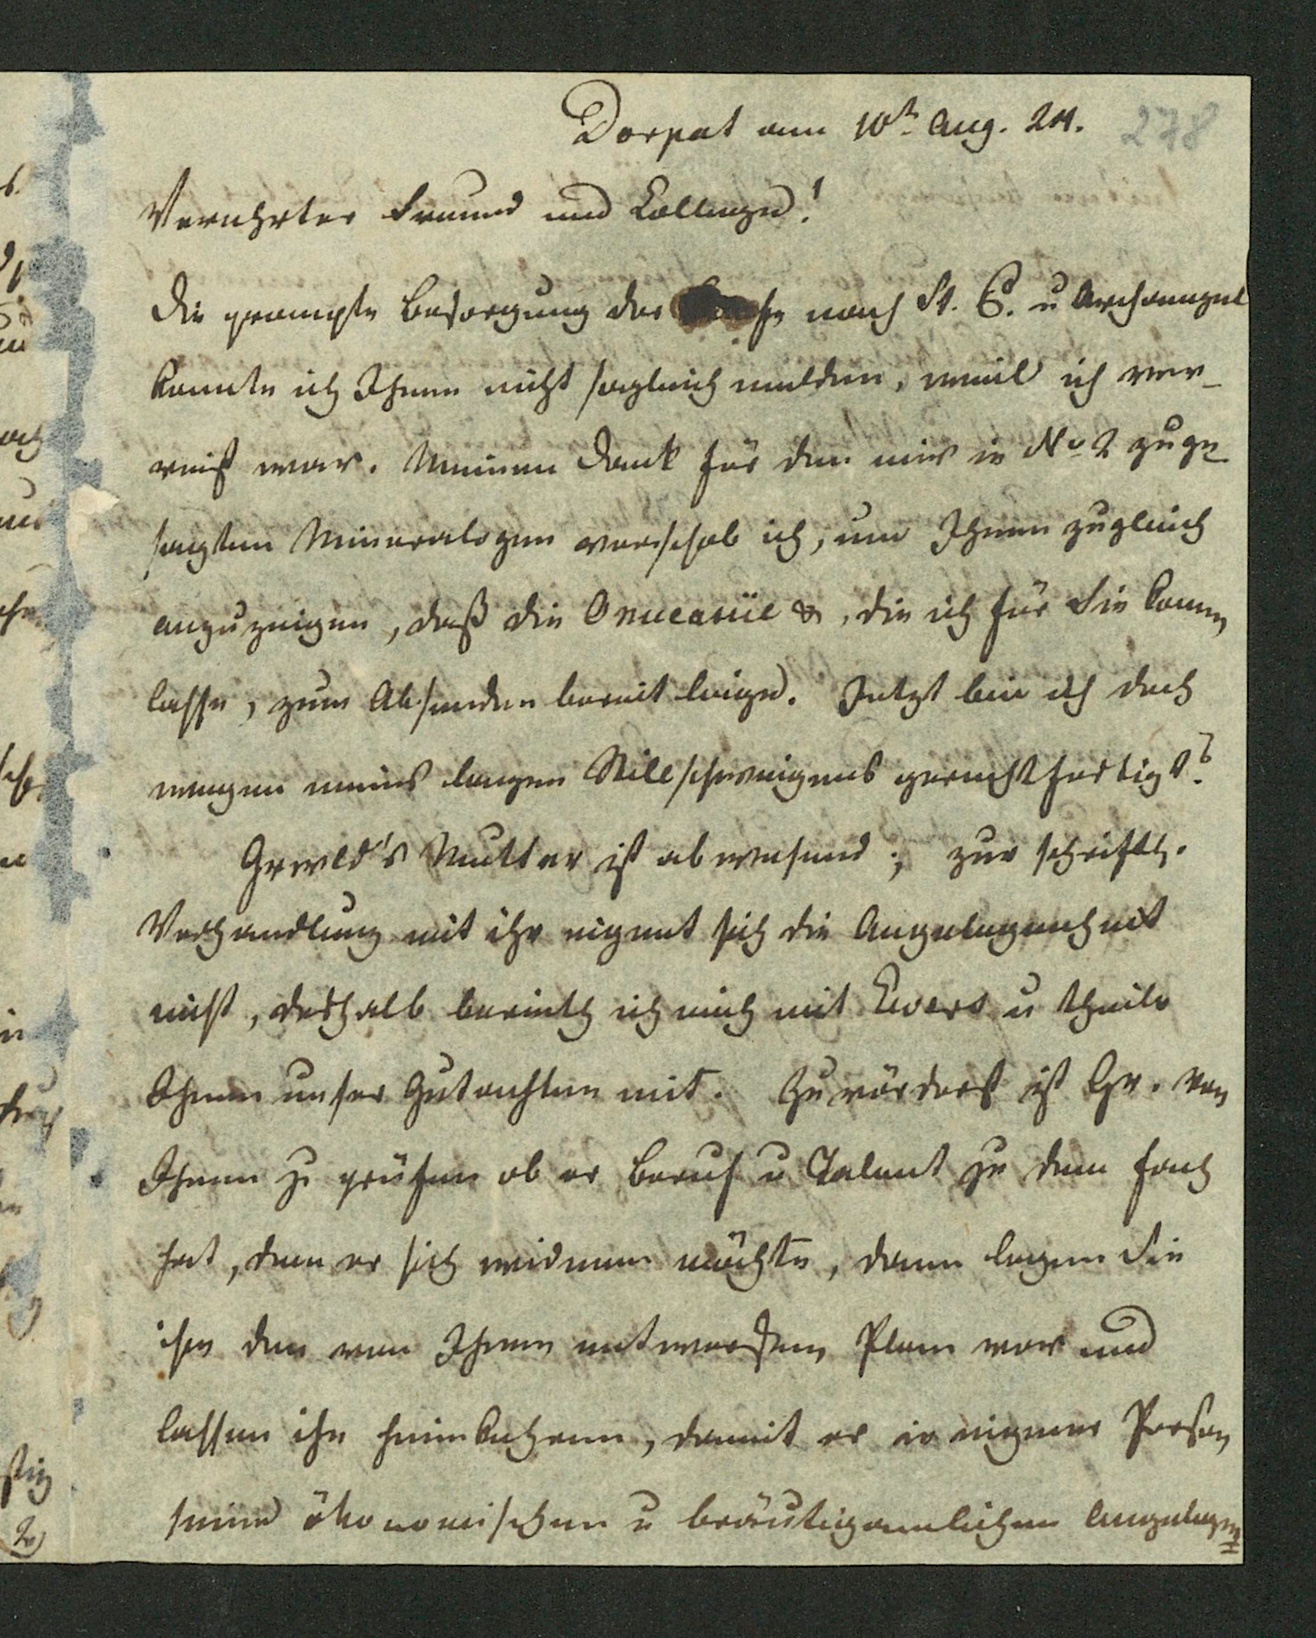 Dorpat am 10t Aug. 24.
278
Verehrter Freund und College!
Die prompte Besorgung der nach St. P. u Archangel
konnte ich Ihnen nicht sogleich melden, weil ich ver-
reist war. Meinen Dank für den mir in No 2 zuge-
sagten Mineralogen verschob ich, um Ihnen zugleich
anzuzeigen, daß die &, die ich für Sie kommen
lasse, zum Absenden bereit liege. Jetzt bin ich doch
wegen meines langen Stillschweigens gerechtfertigt?
Grwld's Mutter ist abwesend; zur schriftl.
Verhandlung mit ihr eignet sich die Angelegenheit
nicht, deshalb berieth ich mich mit Ewers u theile
Ihnen unser Gutachten mit. Zuvörderst ist Gr. von
Ihnen zu prüfen ob er Beruf u Talent zu dem Fach
hat, dem er sich widmen möchte, dann legen Sie
ihm den von Ihnen entworfenen Plan vor und
lassen ihn heimkehren, damit er in eigener Person
seine ökonomischen u bräutigamlichen Angelegen